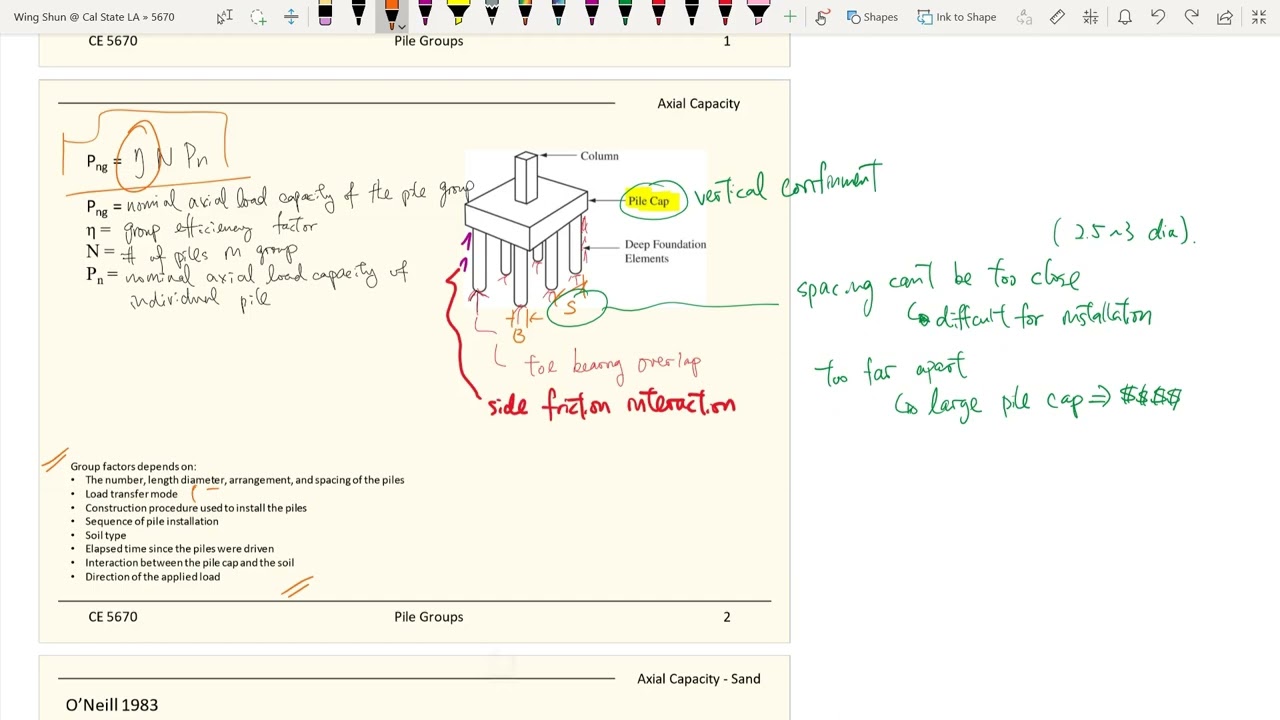 Wing Shun @ Cal State LA » 5670
Shapes
Ink to Shape
CE 5670
Pile Groups
1
Axial Capacity
Png = η N Pn
Png = nominal axial load capacity of the pile group
η = group efficiency factor
N = # of piles in group
Pn = nominal axial load capacity of
individual pile
Column
Pile Cap
vertical confinment
Deep Foundation
Elements
S
B
toe bearing overlap
side friction interaction
(2.5~3 dia).
spacing can't be too close
difficult for installation
too far apart
large pile cap ⇒ $$$$
Group factors depends on:
• The number, length diameter, arrangement, and spacing of the piles
• Load transfer mode
• Construction procedure used to install the piles
• Sequence of pile installation
• Soil type
• Elapsed time since the piles were driven
• Interaction between the pile cap and the soil
• Direction of the applied load
CE 5670
Pile Groups
2
Axial Capacity - Sand
O'Neill 1983